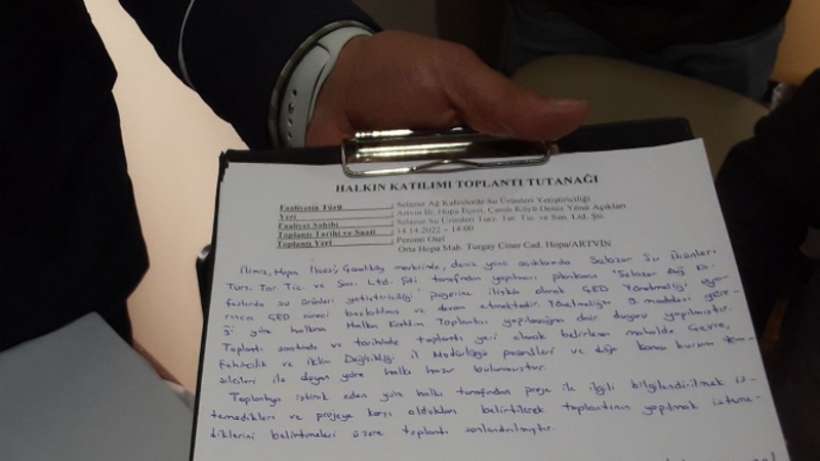 HALKIN KATILIMI TOPLANTI TUTANAĞI
Faaliyetin Türü : Selazur Ağ Kafeslerde Su Ürünleri Yetiştiriciliği
Yeri : Artvin İli, Hopa İlçesi, Köyü Deniz Yönü Açıkları
Faaliyet Sahibi : Selazur Su Ürünleri Turz. Tar. Tic. ve San. Ltd. Şti.
Toplantı Tarihi ve Saati : 14.12.2022 – 14:00
Toplantı Yeri : Peronti Otel
Orta Hopa Mah. Turgay Ciner Cad. Hopa/ARTVİN
İlimiz, Hopa İlçesi, mevkiinde, deniz yönü açıklarında Selazur Su Ürünleri
Turz. Tar. Tic. ve San. Ltd. Şti tarafından yapılması planlanan "Selazur Ağ Ka-
feslerde su ürünleri yetiştiriciliği" projesine ilişkin olarak ÇED Yönetmeliği uya-
rınca ÇED süreci başlatılmış ve devam etmektedir. Yönetmeliğin 9. maddesi gere-
ği yöre halkına Halkın Katılım Toplantısı yapılacağına dair duyuru yapılmıştır.
Toplantı saatinde ve tarihinde toplantı yeri olarak belirlenen mahalde Çevre,
Şehircilik ve İklim Değişikliği İl Müdürlüğü personelleri ve diğer kamu kurum tem-
silcileri ile yöre halkı hazır bulunmuştur.
Toplantıya iştirak eden yöre halkı tarafından proje ile ilgili bilgilendirilmek is-
temedikleri ve projeye karşı oldukları belirtilerek toplantının yapılmak isteme-
diklerini belirtmeleri üzere toplantı sonlandırılmıştır.